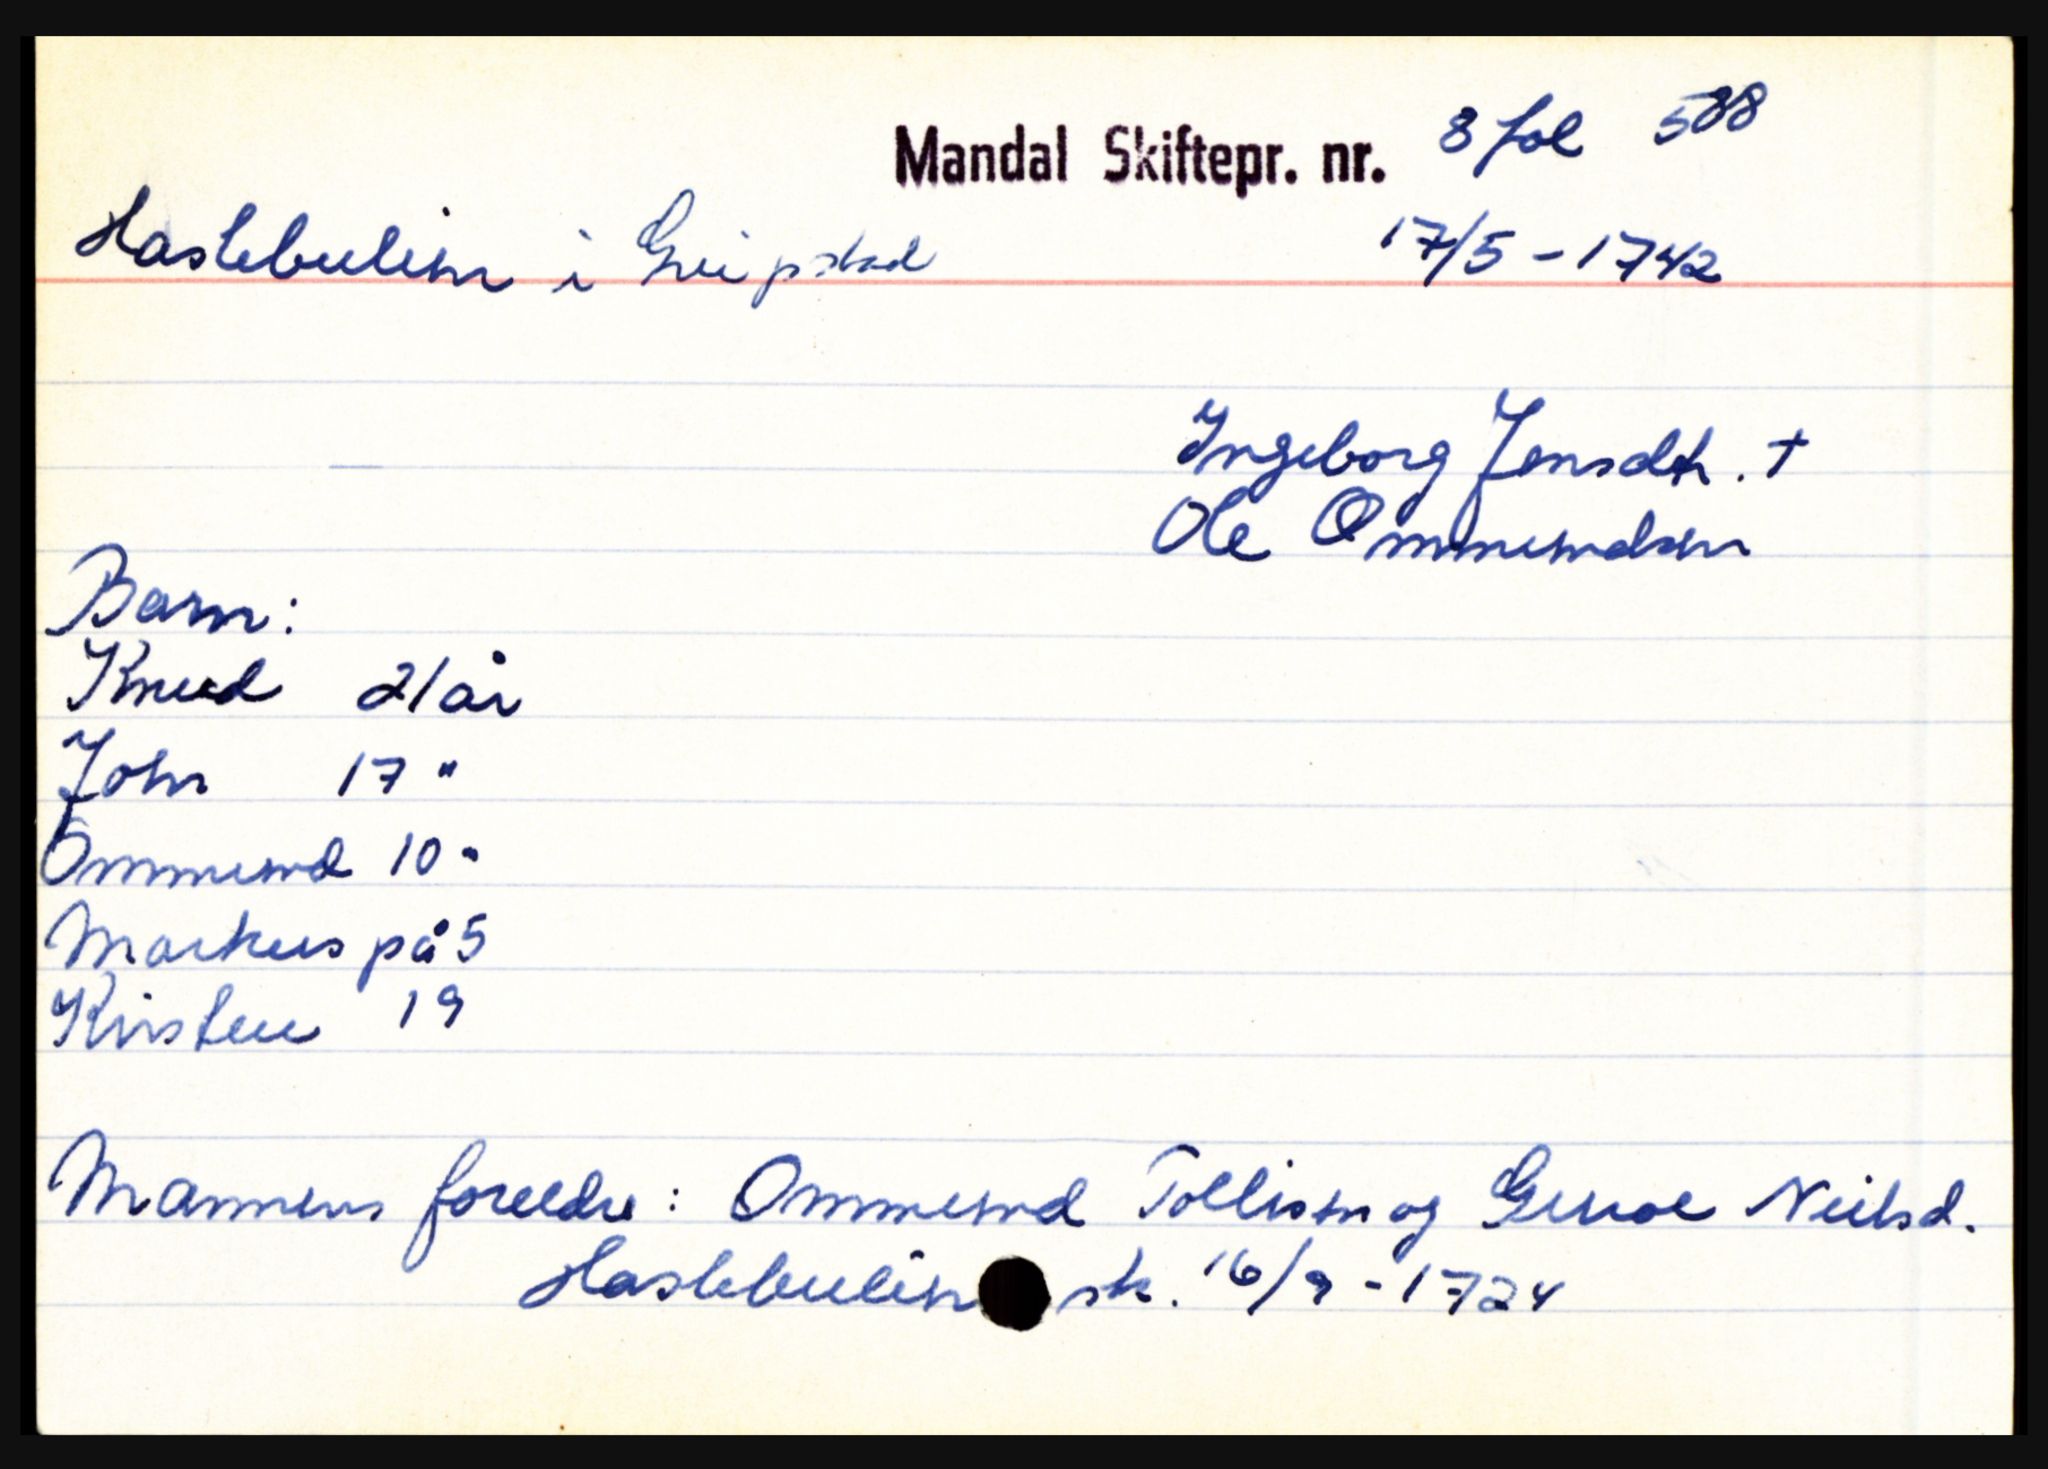 Mandal Skiftepr. nr. 8 fol 588
Haslebulien i Greipstad 17/5 - 1742
Ingeborg Jensdtr. †
Ole Ommundsen
Barn:
Knud 21 år
John 17 "
Ommund 10 "
Markus på 5
Kirsten 19
Mannens foreldre: Ommund Tollisen og Nielsd.
Haslebulien sk. 16/9 - 1724